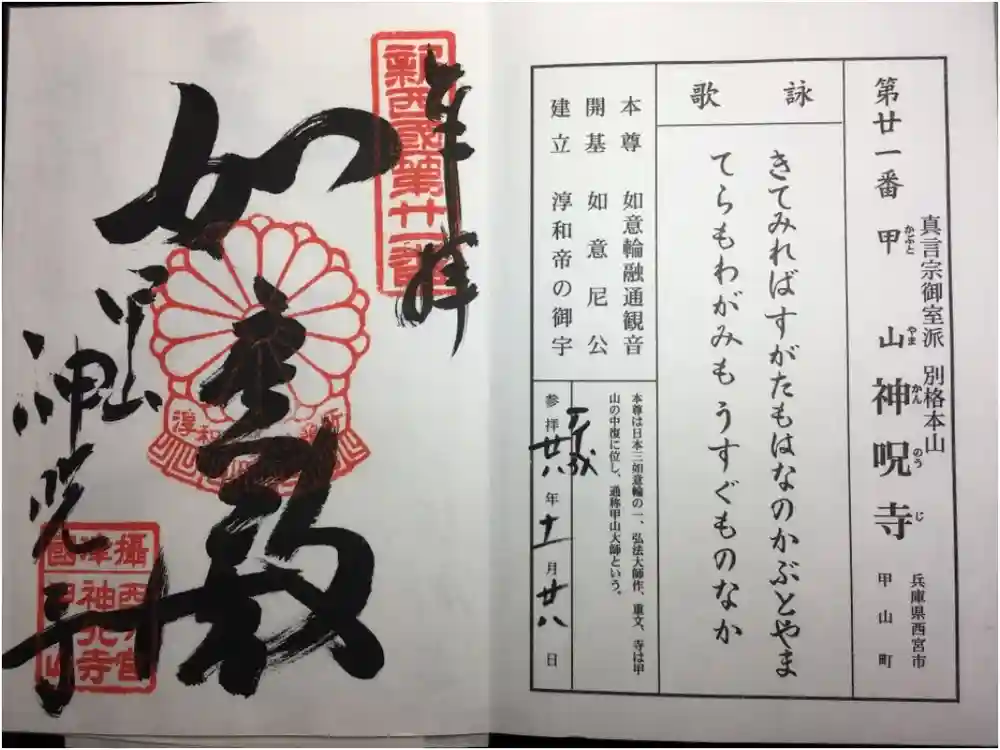 第廿一番
真言宗御室派 別格本山
甲山神呪寺
かぶと やま かん のう じ
兵庫県西宮市
甲山町
詠歌
きてみればすがたもはなのかぶとやま
てらもわがみもうすぐものなか
本尊 如意輪融通観音
開基 如意尼公
建立 淳和帝の御宇
本尊は日本三如意輪の一、弘法大師作、重文、寺は甲
山の中復に位し、通称甲山大師という。
平成
参拝廿八年十一月廿八日
奉拝
新西國第廿一番
甲山
神呪寺